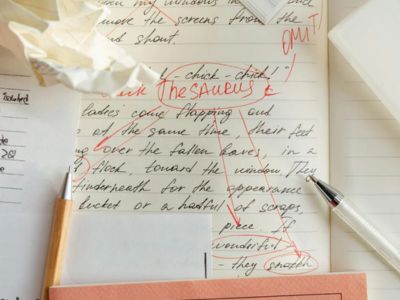 my windows in and
move the screens from the
and shout.
OMIT
- chick - chick!"
THESAURUS
ladies come flapping and
at the same time, their feet
over the fallen leaves, in a
flock, toward the window. They
underneath for the appearance
bucket or a hatful of scraps,
piece. If
wonderful
- they snatch
isolated